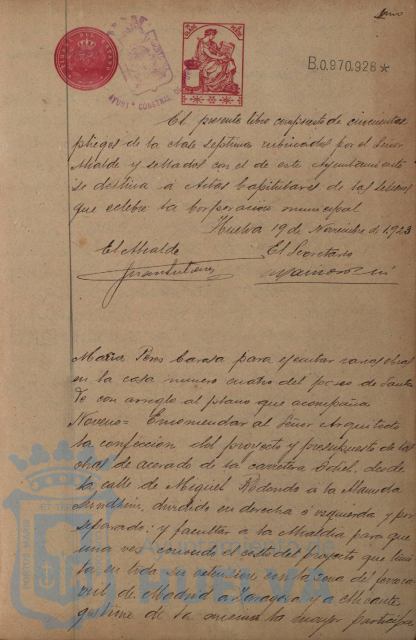 B.0.970.928*
El presente libro compuesto de cincuenta
pliegos de la clase septima rubricados por el Señor
Alcalde y sellados con el de este Ayuntamiento
se destina a Actas Capitulares de las sesiones
que celebre la Corporacion municipal
Huelva 19 de Noviembre de 1923
El Alcalde El Secretario
Maria Peres Carasa para ejecutar varias obras
en la casa numero cuatro del paseo de Santa
Fe con arreglo al plano que acompaña
Noveno= Encomendar al Señor Arquitecto
la confeccion del proyecto y presupuesto de las
obras de acerado de la carretera Odiel, desde
la calle de Miguel Redondo a la Alameda
Sundheim, dividido en derecha e izquierda y por
separado; y facultar a la Alcaldia para que
una vez conocido el costo del proyecto que
en toda su extension con la zona del ferroca
rril de Madrid a Zaragoza y a Alicante
gestione de la misma la mayor